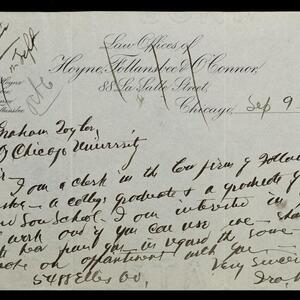 Law Offices of
Hoyne, Follansbee & O'Connor,
88 La Salle Street,
Chicago, Sep 9
Graham Taylor,
Chicago University
I am a clerk in the law firm of Follans
a college graduate & a graduate of
Law School. I am interested in
work and if you can use me I sha
to hear from you in regard to some
an appointment with you
5488 Ellis Av.
Very sincere